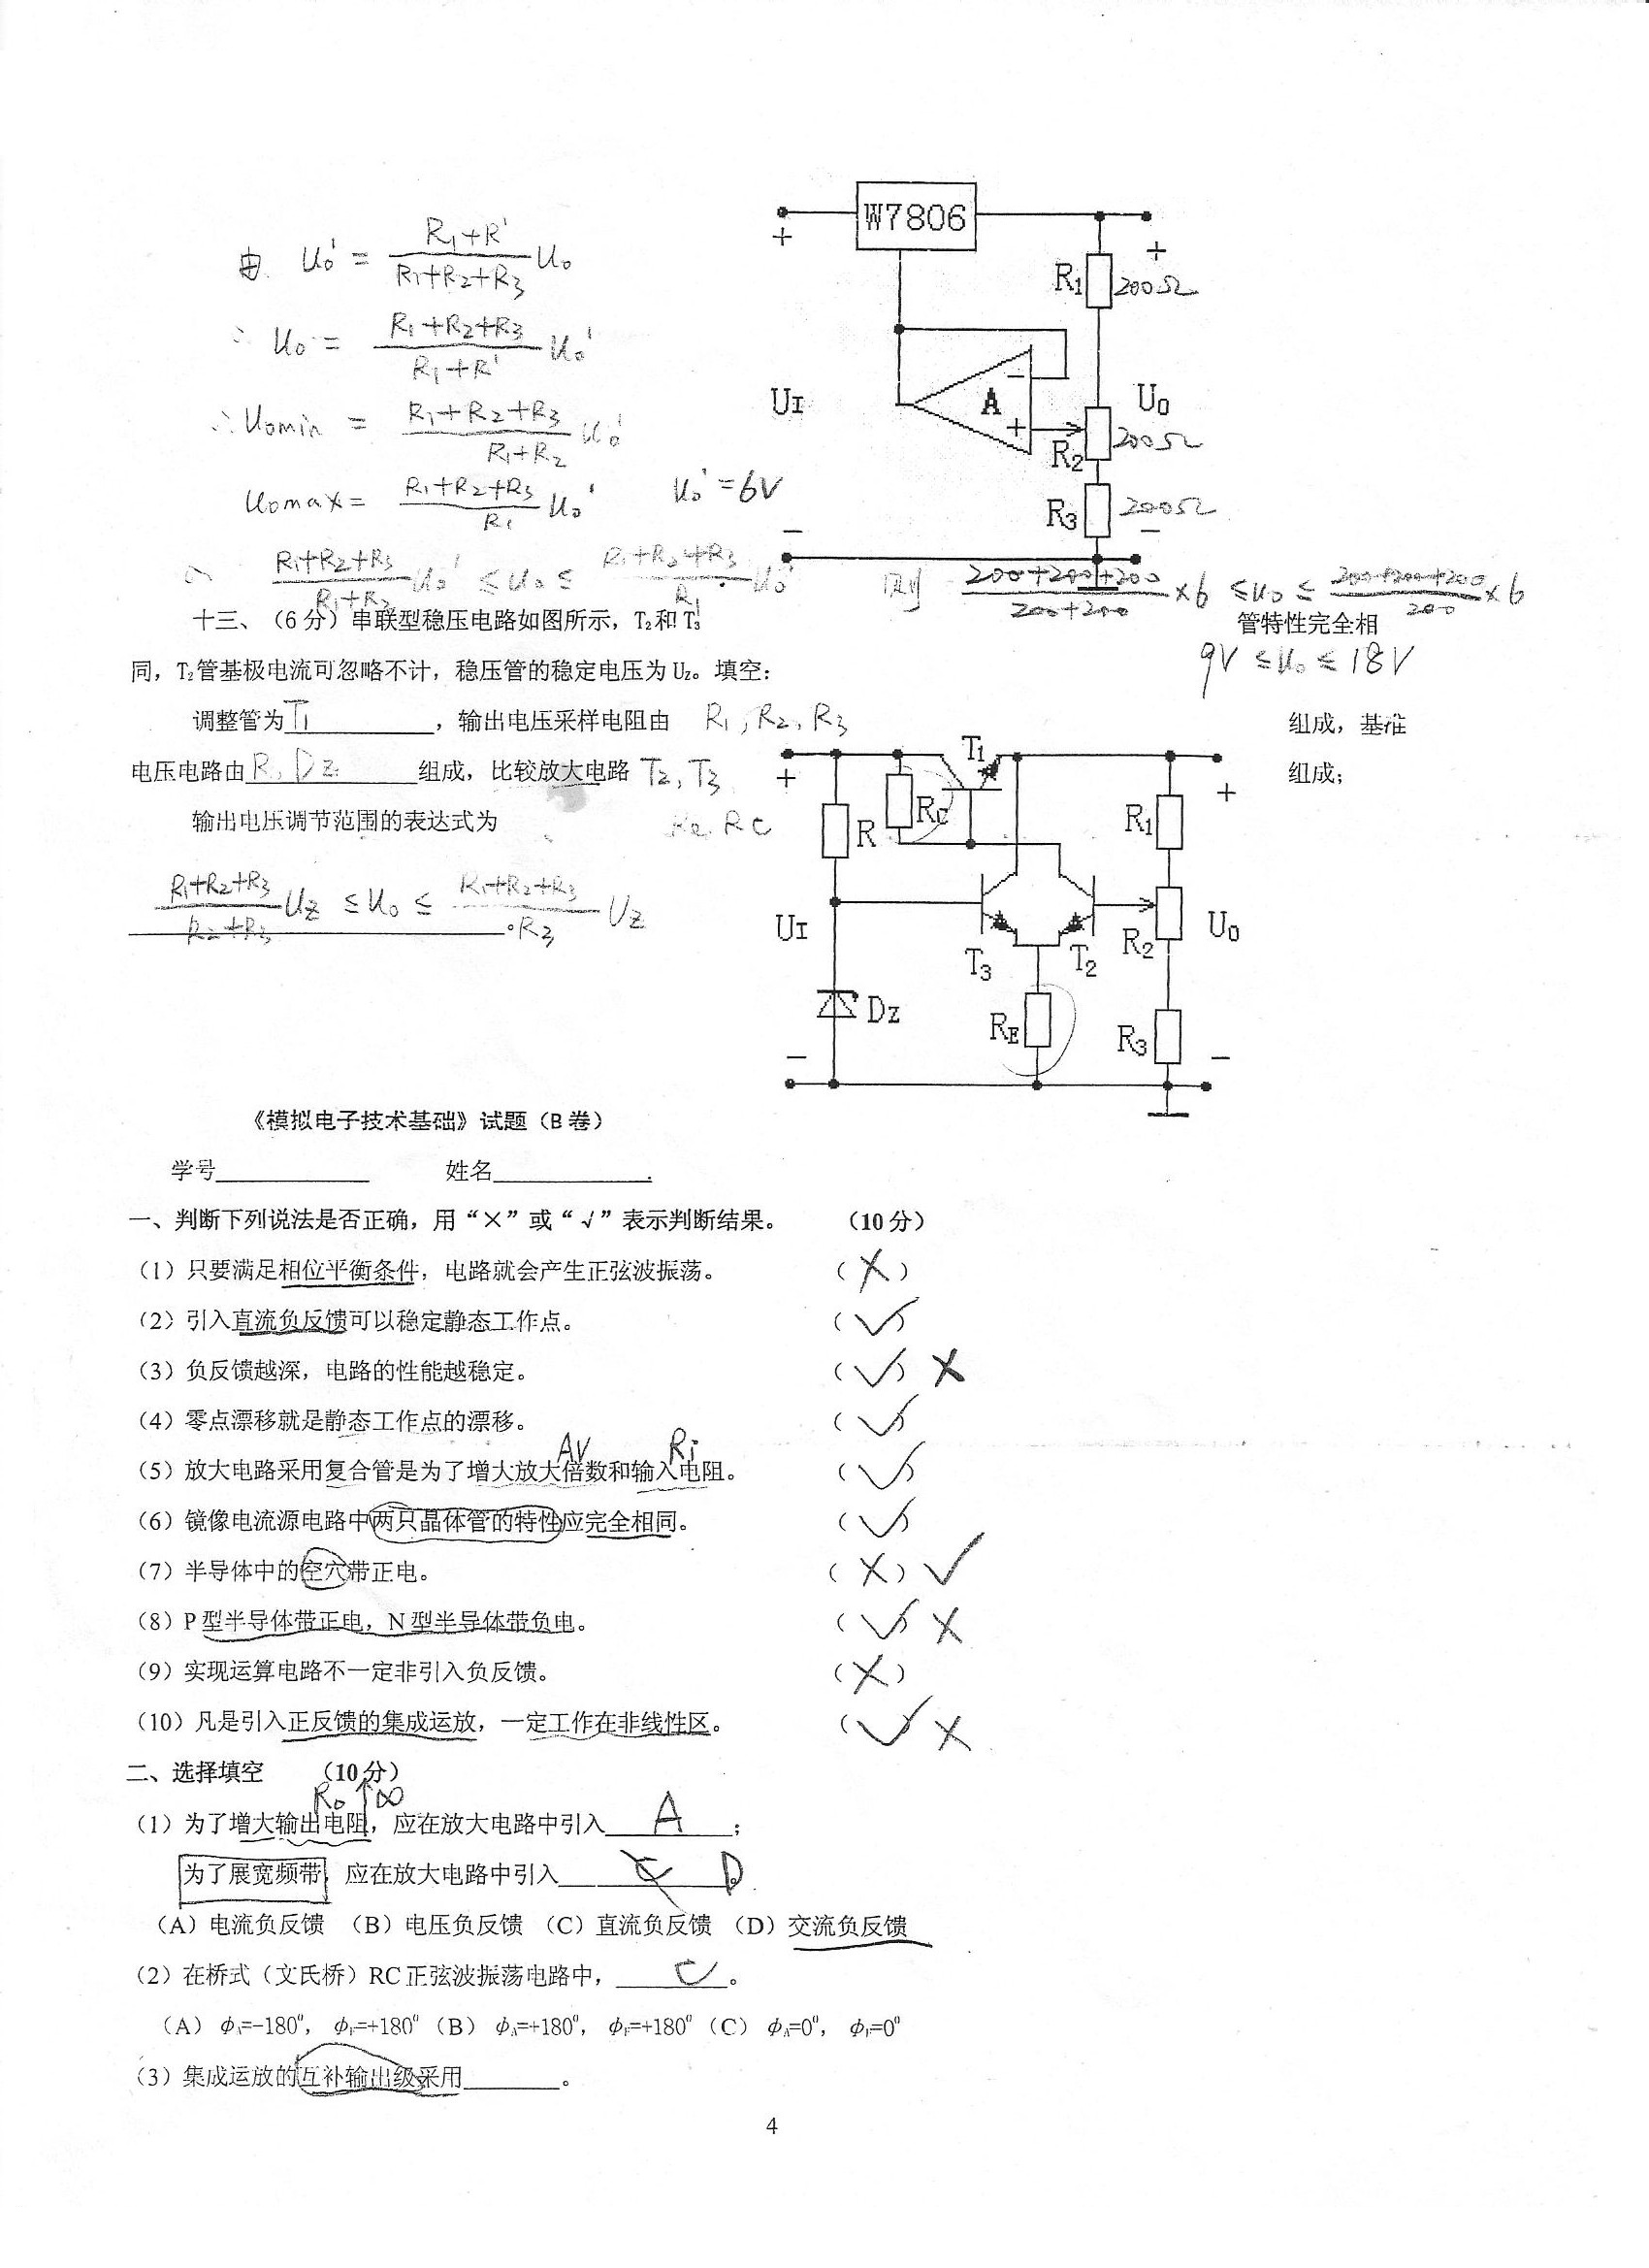 W7806
由 U₀' = (R₁+R')/(R₁+R₂+R₃) U₀
∴ U₀ = (R₁+R₂+R₃)/(R₁+R') U₀'
∴ U₀min = (R₁+R₂+R₃)/(R₁+R₂) U₀'
U₀max = (R₁+R₂+R₃)/R₁ U₀' U₀'=6V
(R₁+R₂+R₃)/(R₁+R₂) U₀' ≤ U₀ ≤ (R₁+R₂+R₃)/R₁ U₀' 则 (200+200+200)/(200+200) ×6 ≤ U₀ ≤ (200+200+200)/200 ×6
+ +
R₁ 200Ω
UI A U₀
− +
R₂ 200Ω
R₃ 200Ω
− −
十三、（6分）串联型稳压电路如图所示，T₂和T₃ 管特性完全相
9V ≤ U₀ ≤ 18V
同，T₂管基极电流可忽略不计，稳压管的稳定电压为Uz。填空：
调整管为T₁，输出电压采样电阻由 R₁，R₂，R₃ 组成，基准
电压电路由R，Dz组成，比较放大电路 T₂，T₃ 组成；
输出电压调节范围的表达式为 RE RC
(R₁+R₂+R₃)/(R₂+R₃) Uz ≤ U₀ ≤ (R₁+R₂+R₃)/R₃ Uz
T₁
+ +
R RC R₁
UI R₂ U₀
T₃ T₂
Dz RE R₃
− −
《模拟电子技术基础》试题（B卷）
学号 姓名
一、判断下列说法是否正确，用“×”或“√”表示判断结果。 （10分）
（1）只要满足相位平衡条件，电路就会产生正弦波振荡。 （×）
（2）引入直流负反馈可以稳定静态工作点。 （√）
（3）负反馈越深，电路的性能越稳定。 （√）×
（4）零点漂移就是静态工作点的漂移。 （√）
Av Ri
（5）放大电路采用复合管是为了增大放大倍数和输入电阻。 （√）
（6）镜像电流源电路中两只晶体管的特性应完全相同。 （√）
（7）半导体中的空穴带正电。 （×）√
（8）P型半导体带正电，N型半导体带负电。 （√）×
（9）实现运算电路不一定非引入负反馈。 （×）
（10）凡是引入正反馈的集成运放，一定工作在非线性区。 （√）×
二、选择填空 （10分）
R₀↑∞
（1）为了增大输出电阻，应在放大电路中引入 A ；
为了展宽频带，应在放大电路中引入 C D
（A）电流负反馈 （B）电压负反馈 （C）直流负反馈 （D）交流负反馈
（2）在桥式（文氏桥）RC正弦波振荡电路中， C 。
（A）φA=−180⁰，φF=+180⁰（B）φA=+180⁰，φF=+180⁰（C）φA=0⁰，φF=0⁰
（3）集成运放的互补输出级采用 。
4